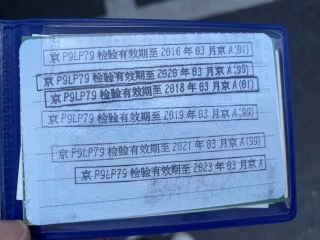 京 P9LP79 检验有效期至 2016 年 03 月京 A(01)
京 P9LP79 检验有效期至 2020 年 03 月京 A(99)
京 P9LP79 检验有效期至 2018 年 03 月京 A(01)
京 P9LP79 检验有效期至 2019 年 03 月京 A(99)
京 P9LP79 检验有效期至 2021 年 03 月京 A(99)
京 P9LP79 检验有效期至 2023 年 03 月京 A